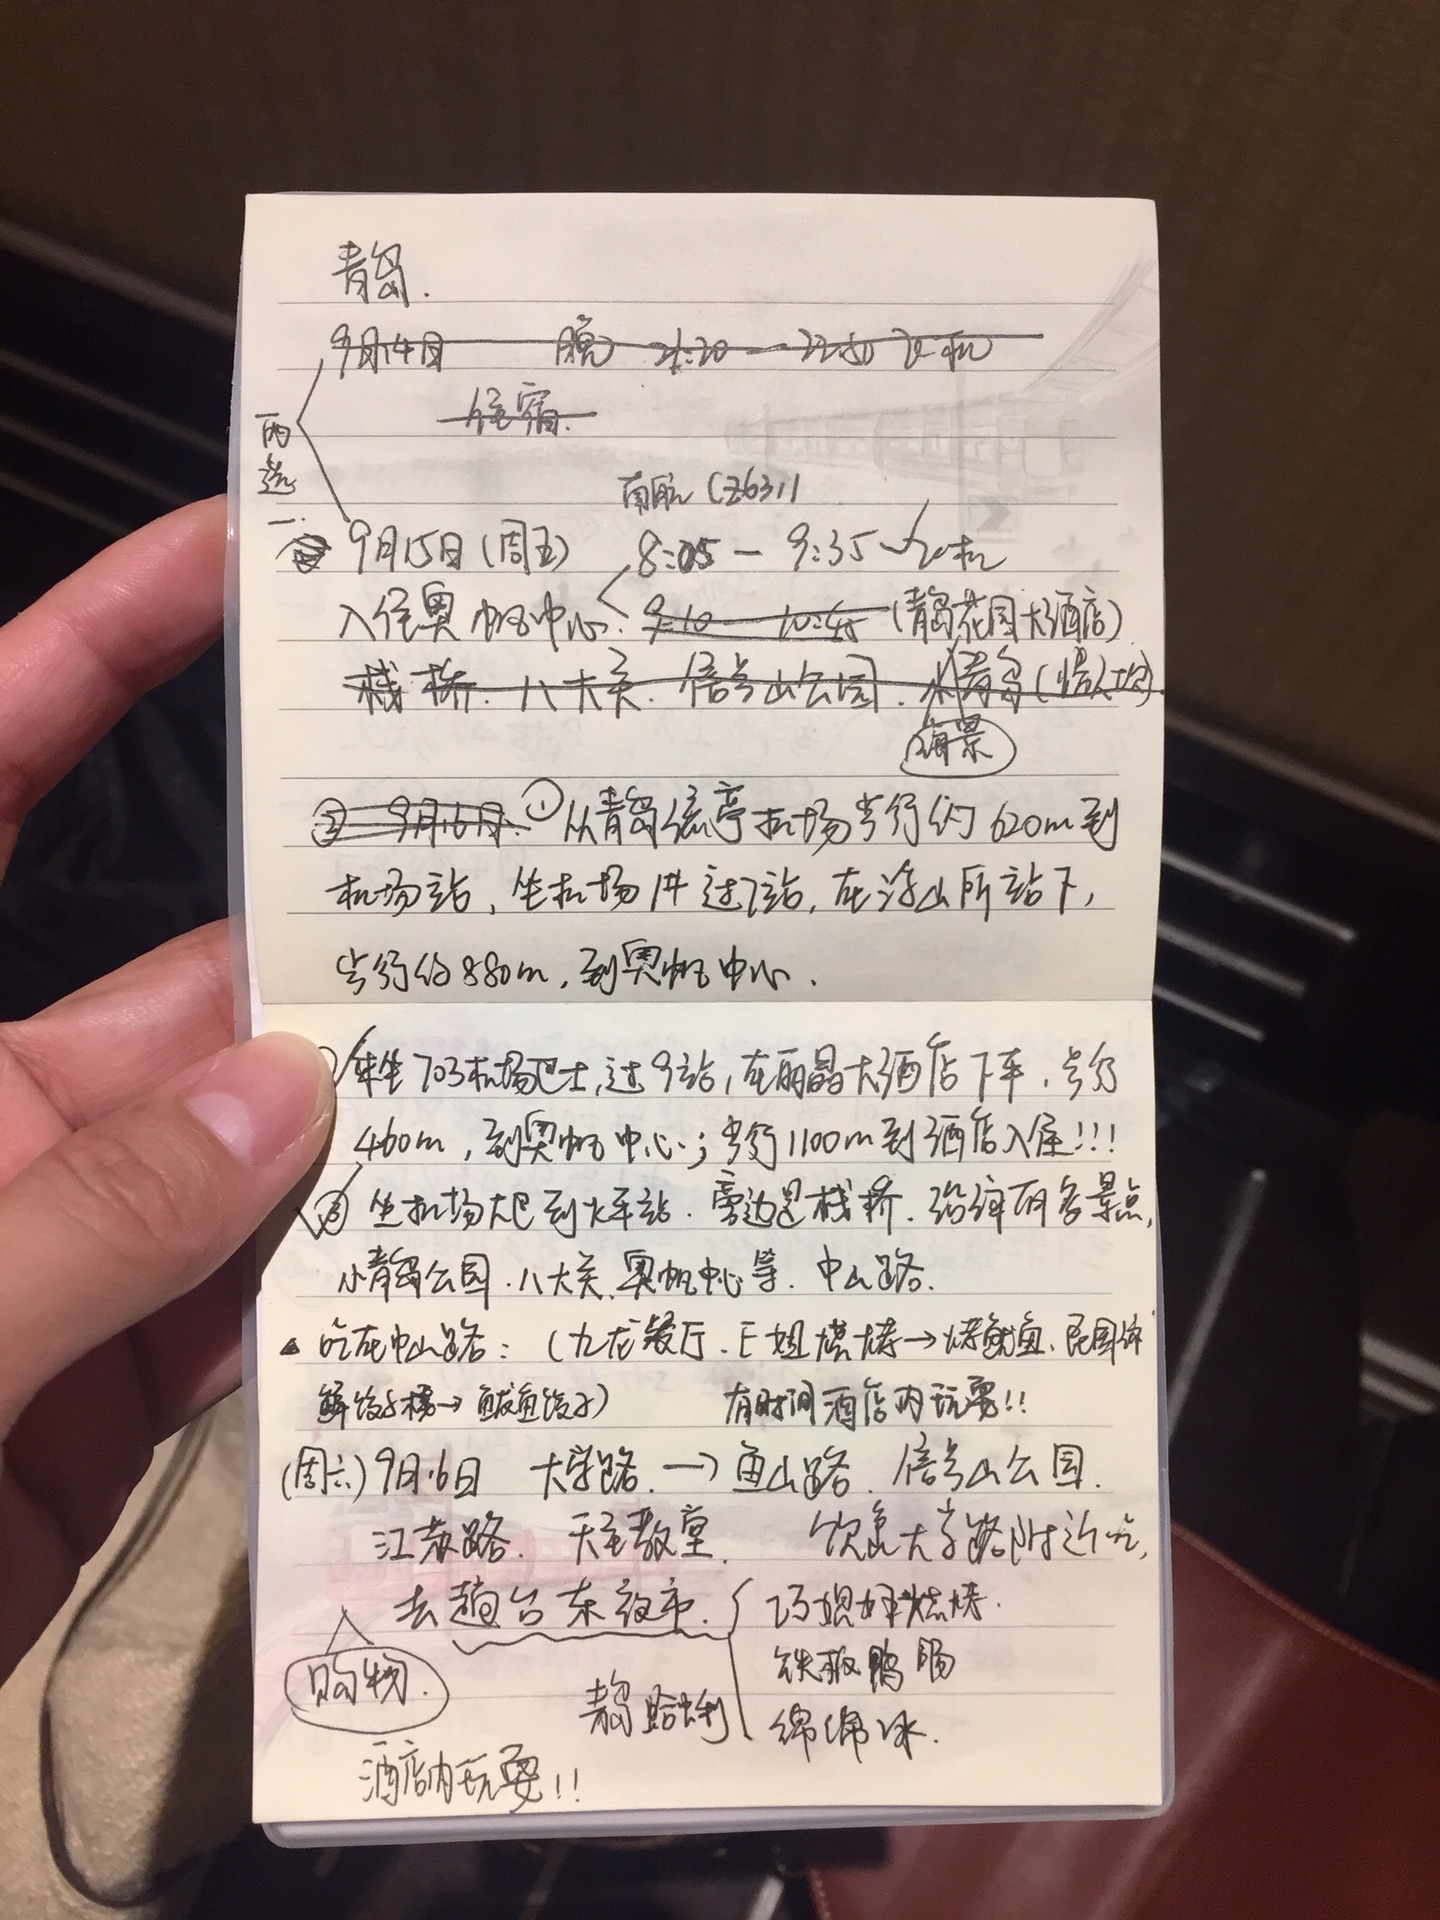 青岛.
9月14日 晚 21:20 — 22:50 飞机
住宿.
两选一.
南航 CZ6311
9月15日(周五) 8:05 — 9:35 飞机
入住奥帆中心. 9:10 — 10:45 (青岛花园大酒店)
栈桥. 八大关. 信号山公园. 小青岛(情人坝)
海景
② 9月16日. ① 从青岛流亭机场步行约620m到
机场站, 坐机场1# 过7站, 在浮山所站下,
步行约880m, 到奥帆中心.
乘坐703机场巴士, 过9站, 在丽晶大酒店下车, 步行
460m, 到奥帆中心; 步行1100m到酒店入住!!!
③ 坐机场大巴到火车站. 旁边是栈桥. 沿线有多景点,
小青岛公园. 八大关. 奥帆中心等. 中山路.
▲ 吃在中山路: (九龙餐厅. E姐烧烤→烤鱿鱼. 民国海
鲜饺子楼→鲅鱼饺子) 有时间酒店内玩耍!!
(周六) 9月16日 大学路 → 鱼山路. 信号山公园.
江苏路. 天主教堂. 饮食大学路附近吃,
去趟台东夜市. { 巧媳妇烧烤.
购物. 铁板鸭肠
青岛蛤蜊 绵绵冰.
酒店内玩耍!!